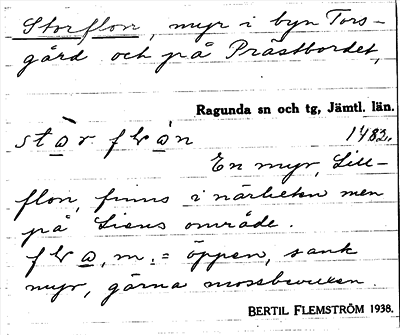 Storflon, myr i byn Tors-
gård och på Prästbordet,
Ragunda sn och tg, Jämtl. län.
stàr flán 1482.
En myr, Lill-
flon, finns i närheten men
på Lisens område.
fla, m. = öppen, sank
myr, gärna mossbevuxen.
BERTIL FLEMSTRÖM 1938.